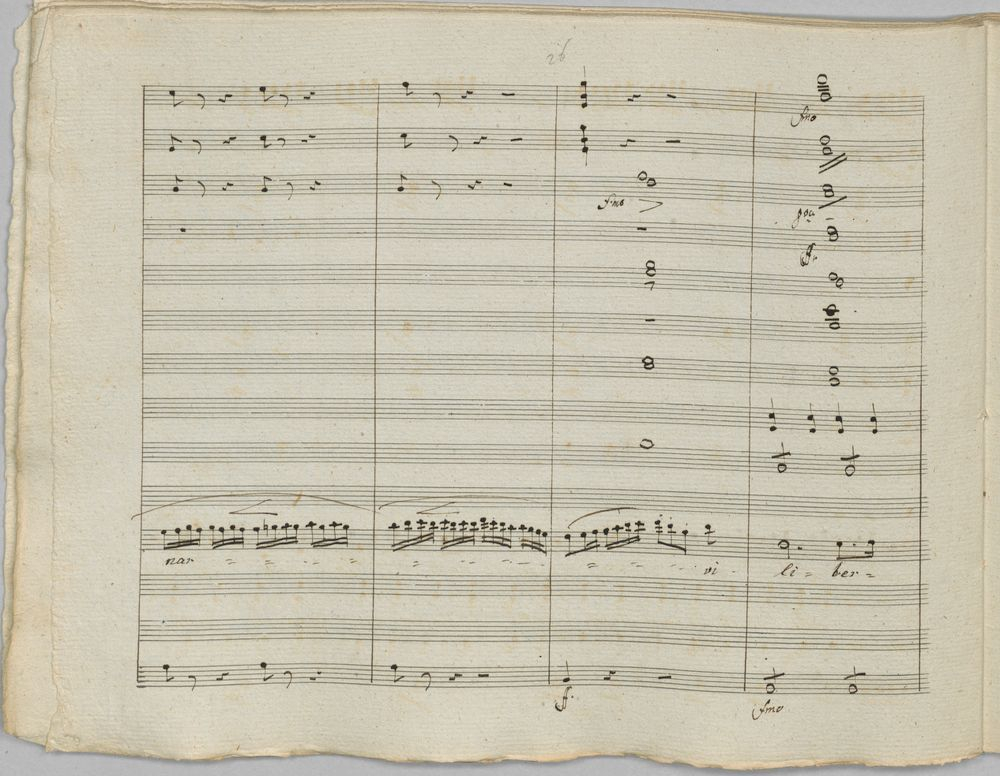 26
fmo
fmo
poco
f.
nar - - - - - - - - - - vi - li - ber -
f.
fmo